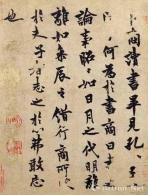 卜商讀書畢見孔子
何為於書商曰書
論事昭昭如日月之代明
離如參辰之錯行商所
於夫子者志之於心弗敢忘
也